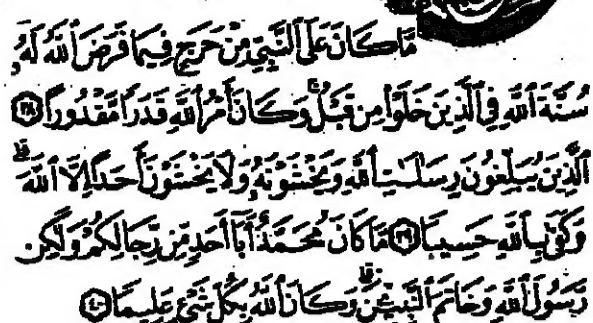 مَّا كَانَ عَلَى ٱلنَّبِيِّ مِنْ حَرَجٍ فِيمَا فَرَضَ ٱللَّهُ لَهُۥ
سُنَّةَ ٱللَّهِ فِي ٱلَّذِينَ خَلَوْا۟ مِن قَبْلُ ۚ وَكَانَ أَمْرُ ٱللَّهِ قَدَرًا مَّقْدُورًا ﴿٣٨﴾
ٱلَّذِينَ يُبَلِّغُونَ رِسَـٰلَـٰتِ ٱللَّهِ وَيَخْشَوْنَهُۥ وَلَا يَخْشَوْنَ أَحَدًا إِلَّا ٱللَّهَ ۗ
وَكَفَىٰ بِٱللَّهِ حَسِيبًا ﴿٣٩﴾ مَّا كَانَ مُحَمَّدٌ أَبَآ أَحَدٍ مِّن رِّجَالِكُمْ وَلَـٰكِن
رَّسُولَ ٱللَّهِ وَخَاتَمَ ٱلنَّبِيِّـۧنَ ۗ وَكَانَ ٱللَّهُ بِكُلِّ شَىْءٍ عَلِيمًا ﴿٤٠﴾